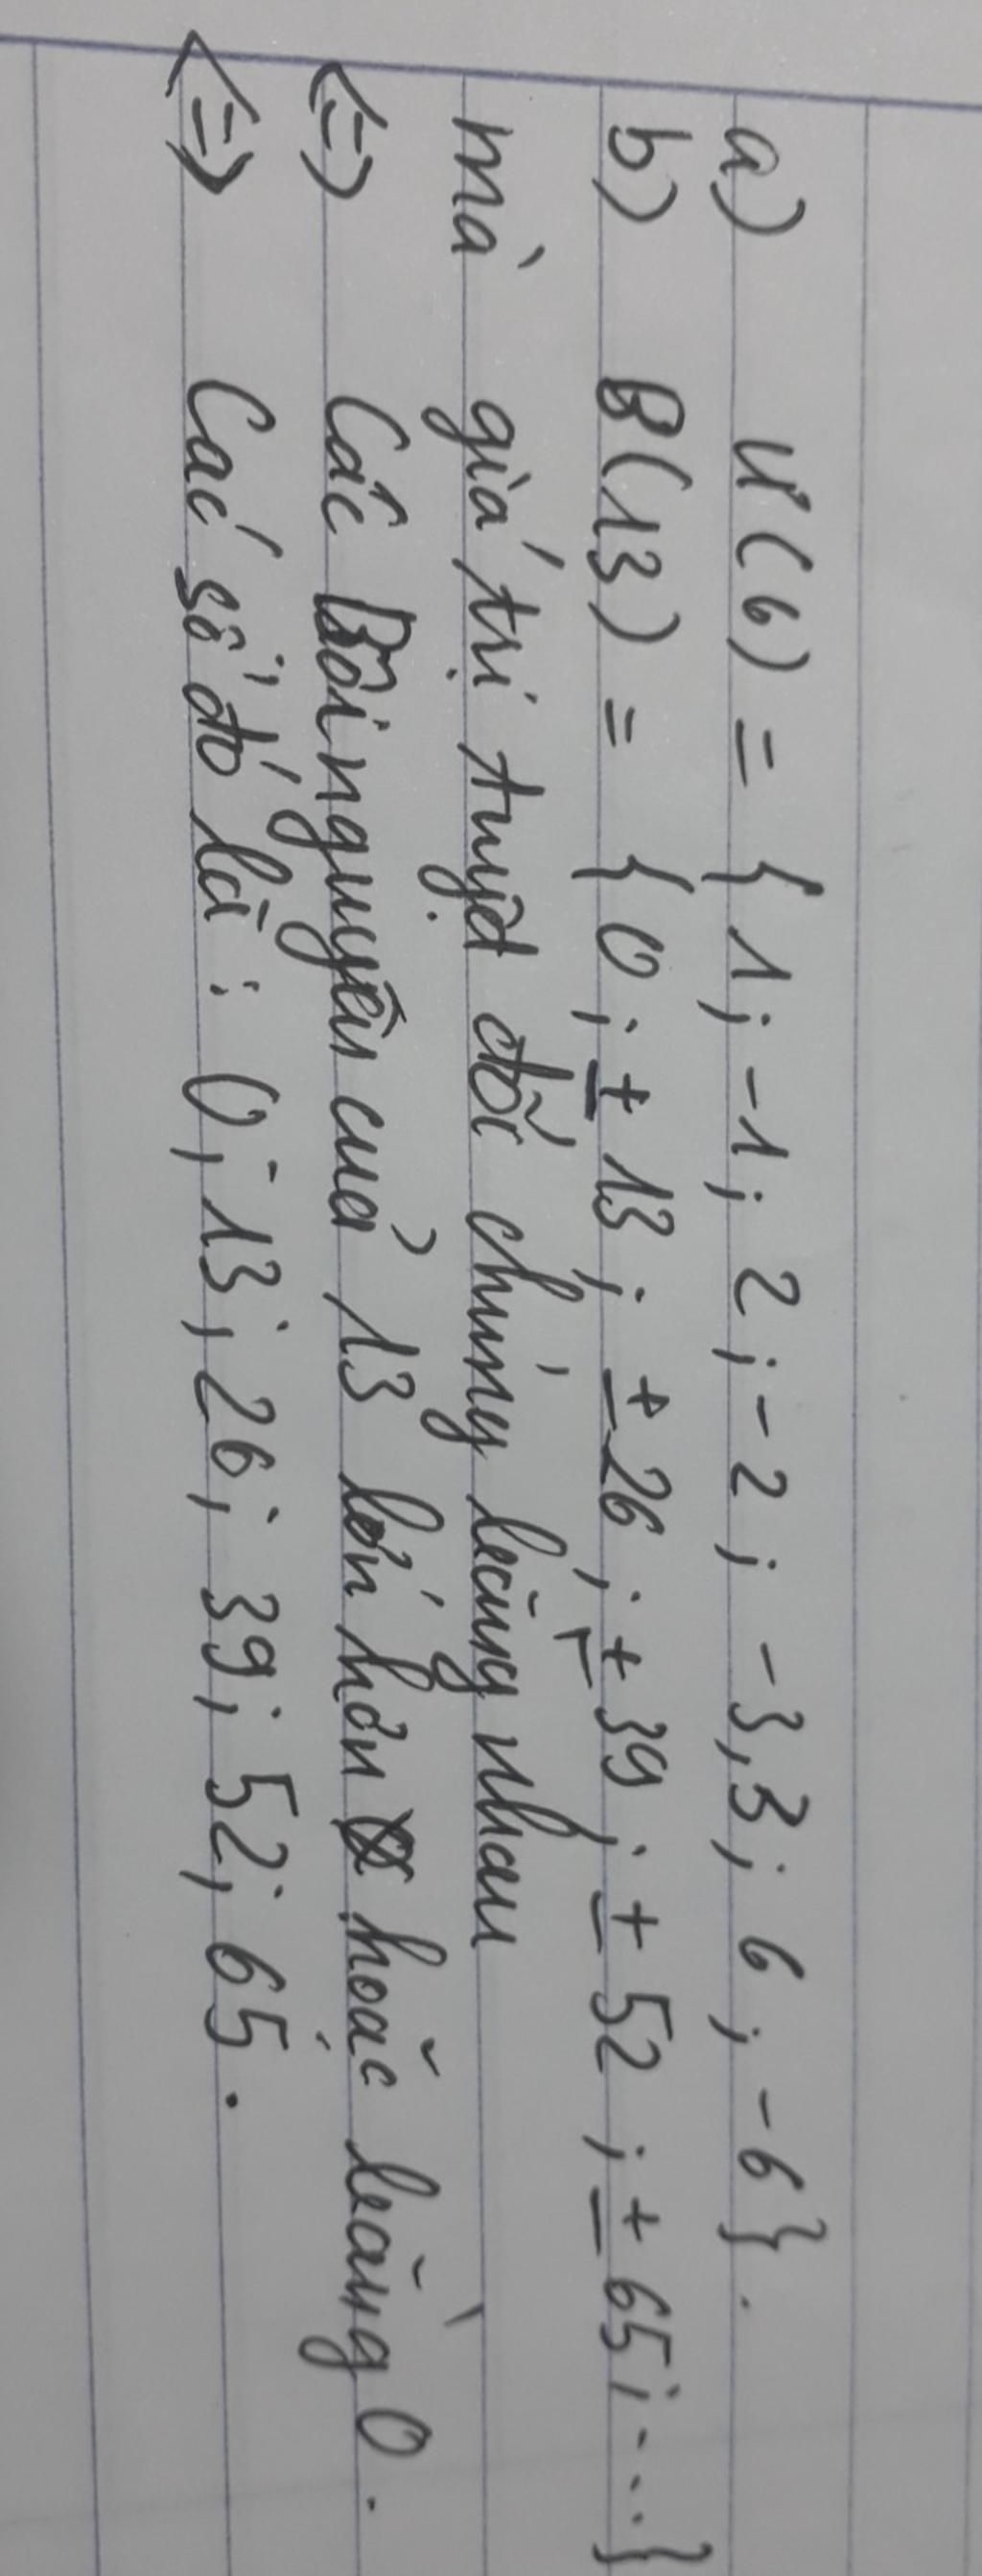 a) Ư(6) = { 1; -1; 2; -2; -3; 3; 6; -6}.
b) B(13) = { 0; ± 13; ± 26; ± 39; ± 52; ± 65; ...}
mà giá trị tuyệt đối chúng bằng nhau
<=> Các Bội nguyên của 13 lớn hơn hoặc bằng 0.
<=> Các số đó là: 0; 13; 26; 39; 52; 65.